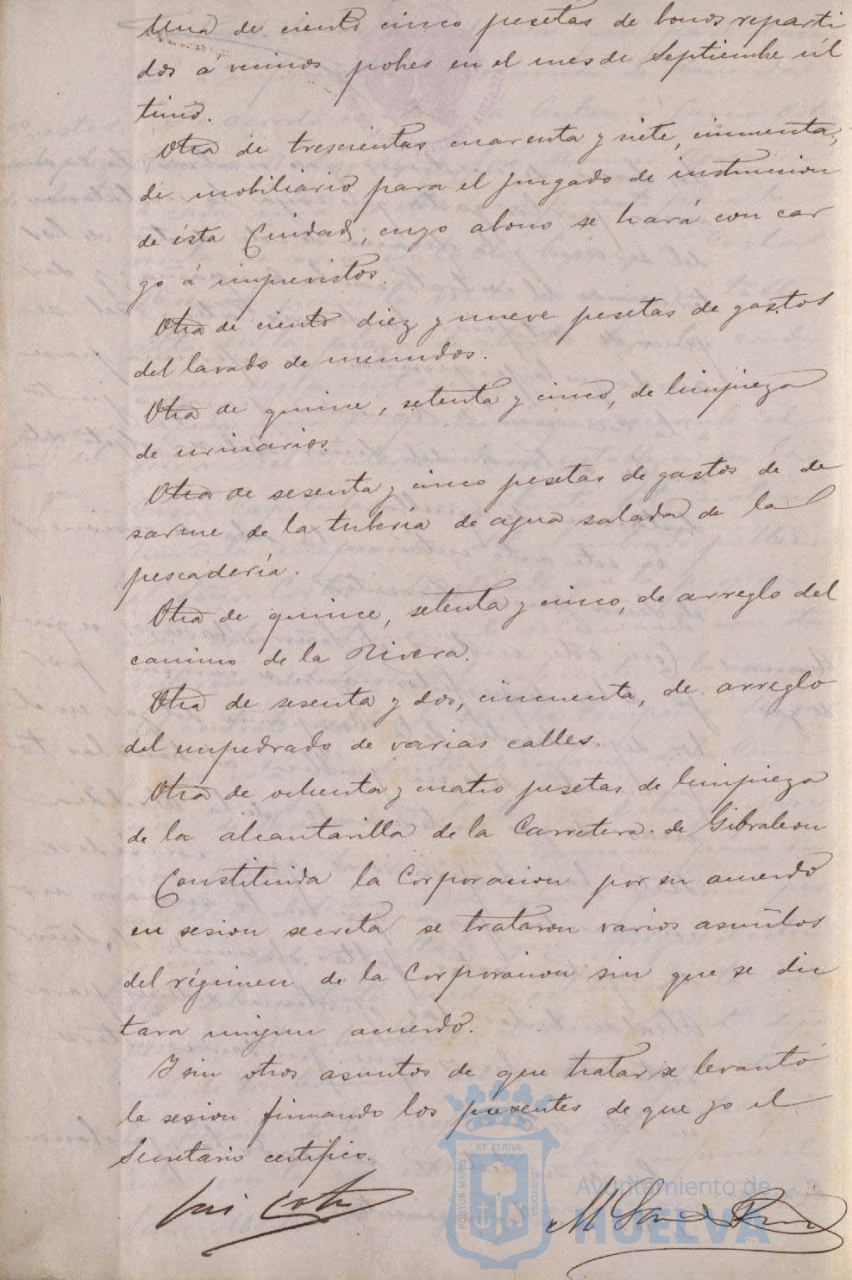 Una de ciento cinco pesetas de bonos reparti
dos a vecinos pobres en el mes de Septiembre úl
timo.
Otra de trescientas cuarenta y siete, cincuenta,
de mobiliario para el juzgado de instruccion
de ésta Ciudad, cuyo abono se hará con car
go á imprevistos.
Otra de ciento diez y nueve pesetas de gastos
del lavado de menudos.
Otra de quince, setenta y cinco, de limpieza
de urinarios.
Otra de sesenta y cinco pesetas de gastos de de
sarme de la tubería de agua salada de la
pescadería.
Otra de quince, setenta y cinco, de arreglo del
camino de la Rivera.
Otra de sesenta y dos, cincuenta, de arreglo
del empedrado de varias calles.
Otra de ochenta y cuatro pesetas de limpieza
de la alcantarilla de la Carretera de Gibraleon
Constituida la Corporacion por su acuerdo
en sesion secreta se trataron varios asuntos
del régimen de la Corporacion sin que se dic
tara ningun acuerdo.
Y sin otros asuntos de que tratar se levantó
la sesion firmando los presentes de que yo el
Secretario certifico.
ET TERRAE
PORTUS MARIS
CUSTODIA
Ayuntamiento de
HUELVA